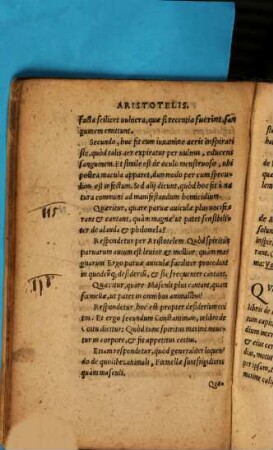 ARISTOTELIS.
Facta scilicet vulnera, quæ si recentia fuerint, san
guinem emittunt.
Secundo, hoc fit cum iuuamine aeris inspirati
ste, quòd talis aer expiratur per vulnus, educens
sanguinem. Et simile est de oculo menstruosæ, ubi
postea macula apparet, dum mulier per cum specu
lum est infectum. Sed alij dicunt, quòd hoc fit à na
tura communi ad manifestandum homicidium.
Quæritur, quare paruæ auiculæ plus vocife
rant & cantant, quàm magnæ ut patet sensibili
ter de alauda & philomela?
Respondetur per Aristotelem. Quòd spiritus
paruarum auium est leuior, & mollior, quàm ma
gnarum Ergo paruæ auiculæ faciliter procedunt
in quodcunq; desiderij, & sic frequenter cantant.
Quæritur, quare Masculi plus cantant, quàm
fœmellæ, ut patet in omnibus animalibus?
Respondetur, hoc est propter desiderium coi
tus. Et ergo secundum Constantinum, in libro de
Coitu dicitur: Quòd tunc spiritus maximè mouen
tur in corpore, & fit appetitus coitus.
Etiam respondetur, quòd generaliter loquen
do de quolibet animali, Fœmellæ sunt frigidiores
quàm masculi.
Quæ
115
118